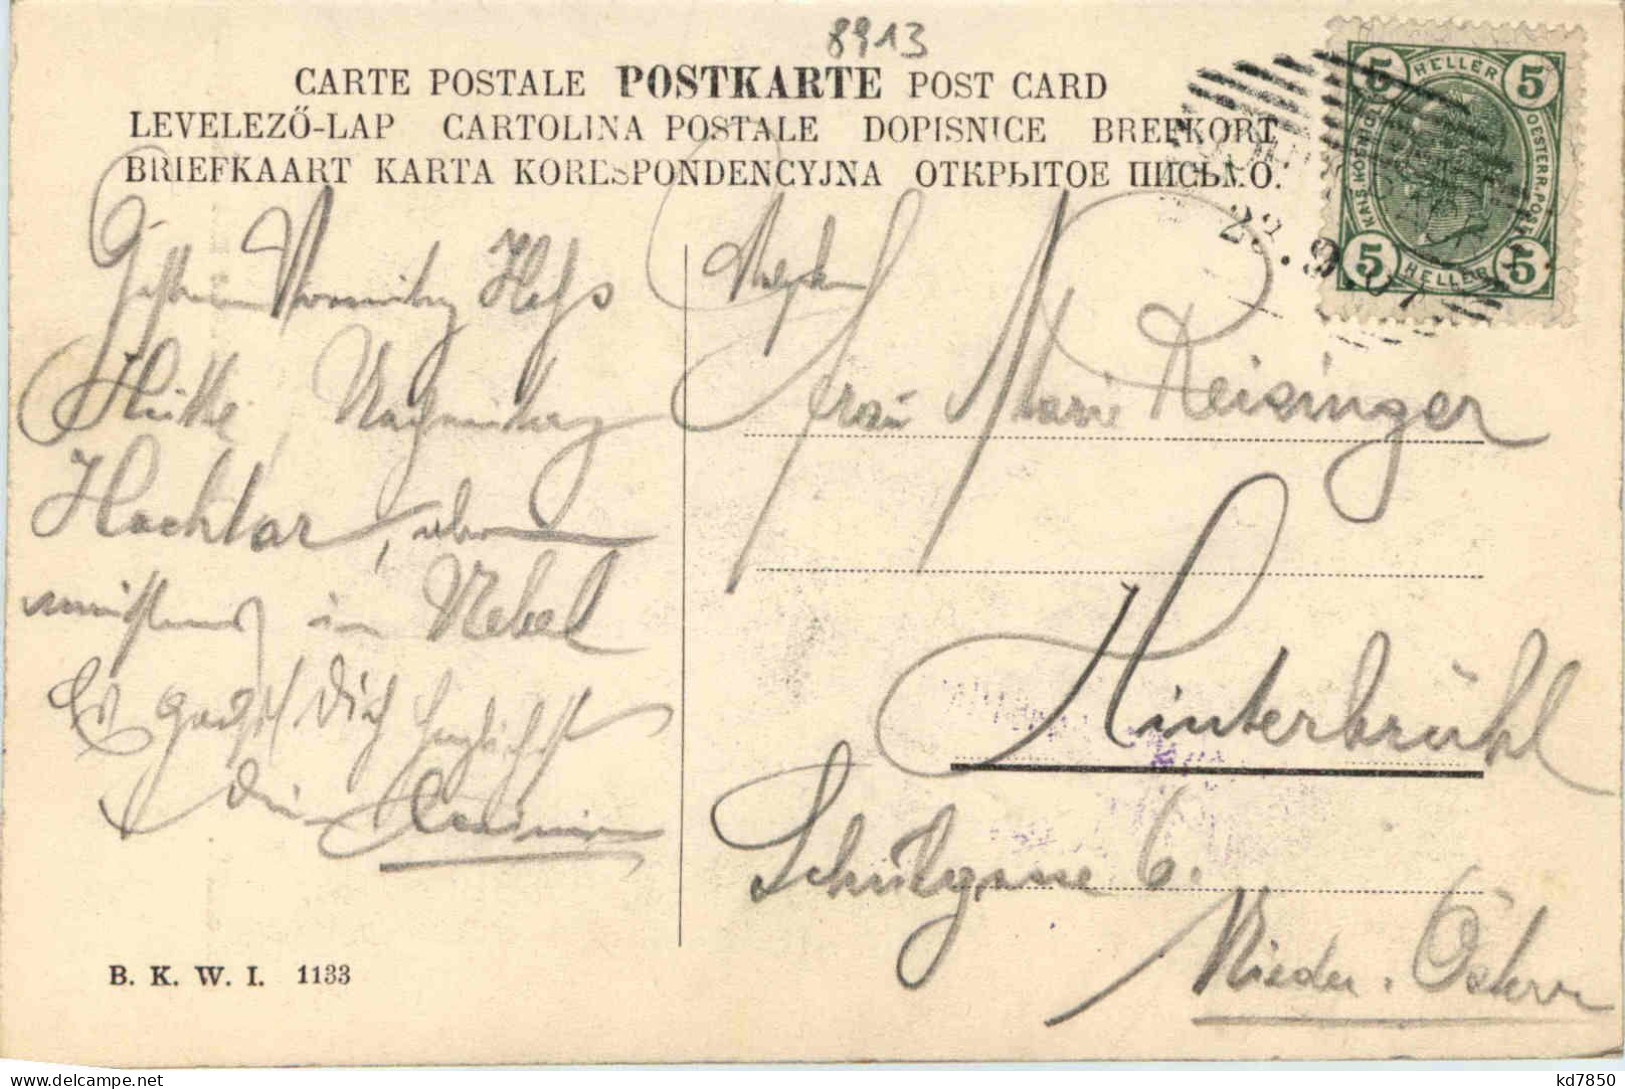 8913
CARTE POSTALE POSTKARTE POST CARD
LEVELEZŐ-LAP CARTOLINA POSTALE DOPISNICE BREFKORT
BRIEFKAART KARTA KORESPONDENCYJNA ОТКРЫТОЕ ПИСЬМО.
5 HELLER 5
KAIS. KÖNIGL. OESTERR. POST
5 HELLER 5
23.9.07
Gestern Vormittag Heß
Hütte, Nachmittag
Hochtor, aber
meistens in Nebel
Es grüßt Dich herzlichst
Dein
Frau Marie Reisinger
Hinterbrühl
Schützgasse 6.
Nieder-Österr
B. K. W. I. 1133
kd7850